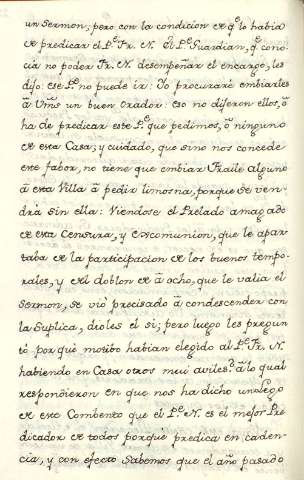 un Sermon; pero con la condicion de q.e lo habia
de predicar el P.e Fr. N. El P.e Guardian, q.e cono-
cia no poder Fr. N. desempeñar el encargo, les
dijo: ese P.e no puede ir: Yo procuraré embiarles
â Vm̃s un buen orador: Eso no diferon ellos, ô
ha de predicar este P.e que pedimos, ô ninguno
de esta Casa; y cuidado, que sino nos concede
este fabor, no tiene que embiar Fraile alguno
â esta Villa â pedir limosna, porque se ven-
drá sin ella: Viendose el Prelado amagado
de esta Censura, y Excomunion, que le apar-
taba de la participacion de los buenos tempo-
rales, y del doblon de â ocho, que le valia el
Sermon, se vió precisado â condescender con
la Suplica, dioles el si; pero luego les pregun-
tó por què motibo habian elegido al P.e Fr. N.
habiendo en Casa otros mui aviles? â lo qual
respondieron en que nos ha dicho un Lego
de este Combento que el P.e N. es el mejor Pre-
dicador de todos porque predica en caden-
cia, y con efecto Sabemos que el año pasado